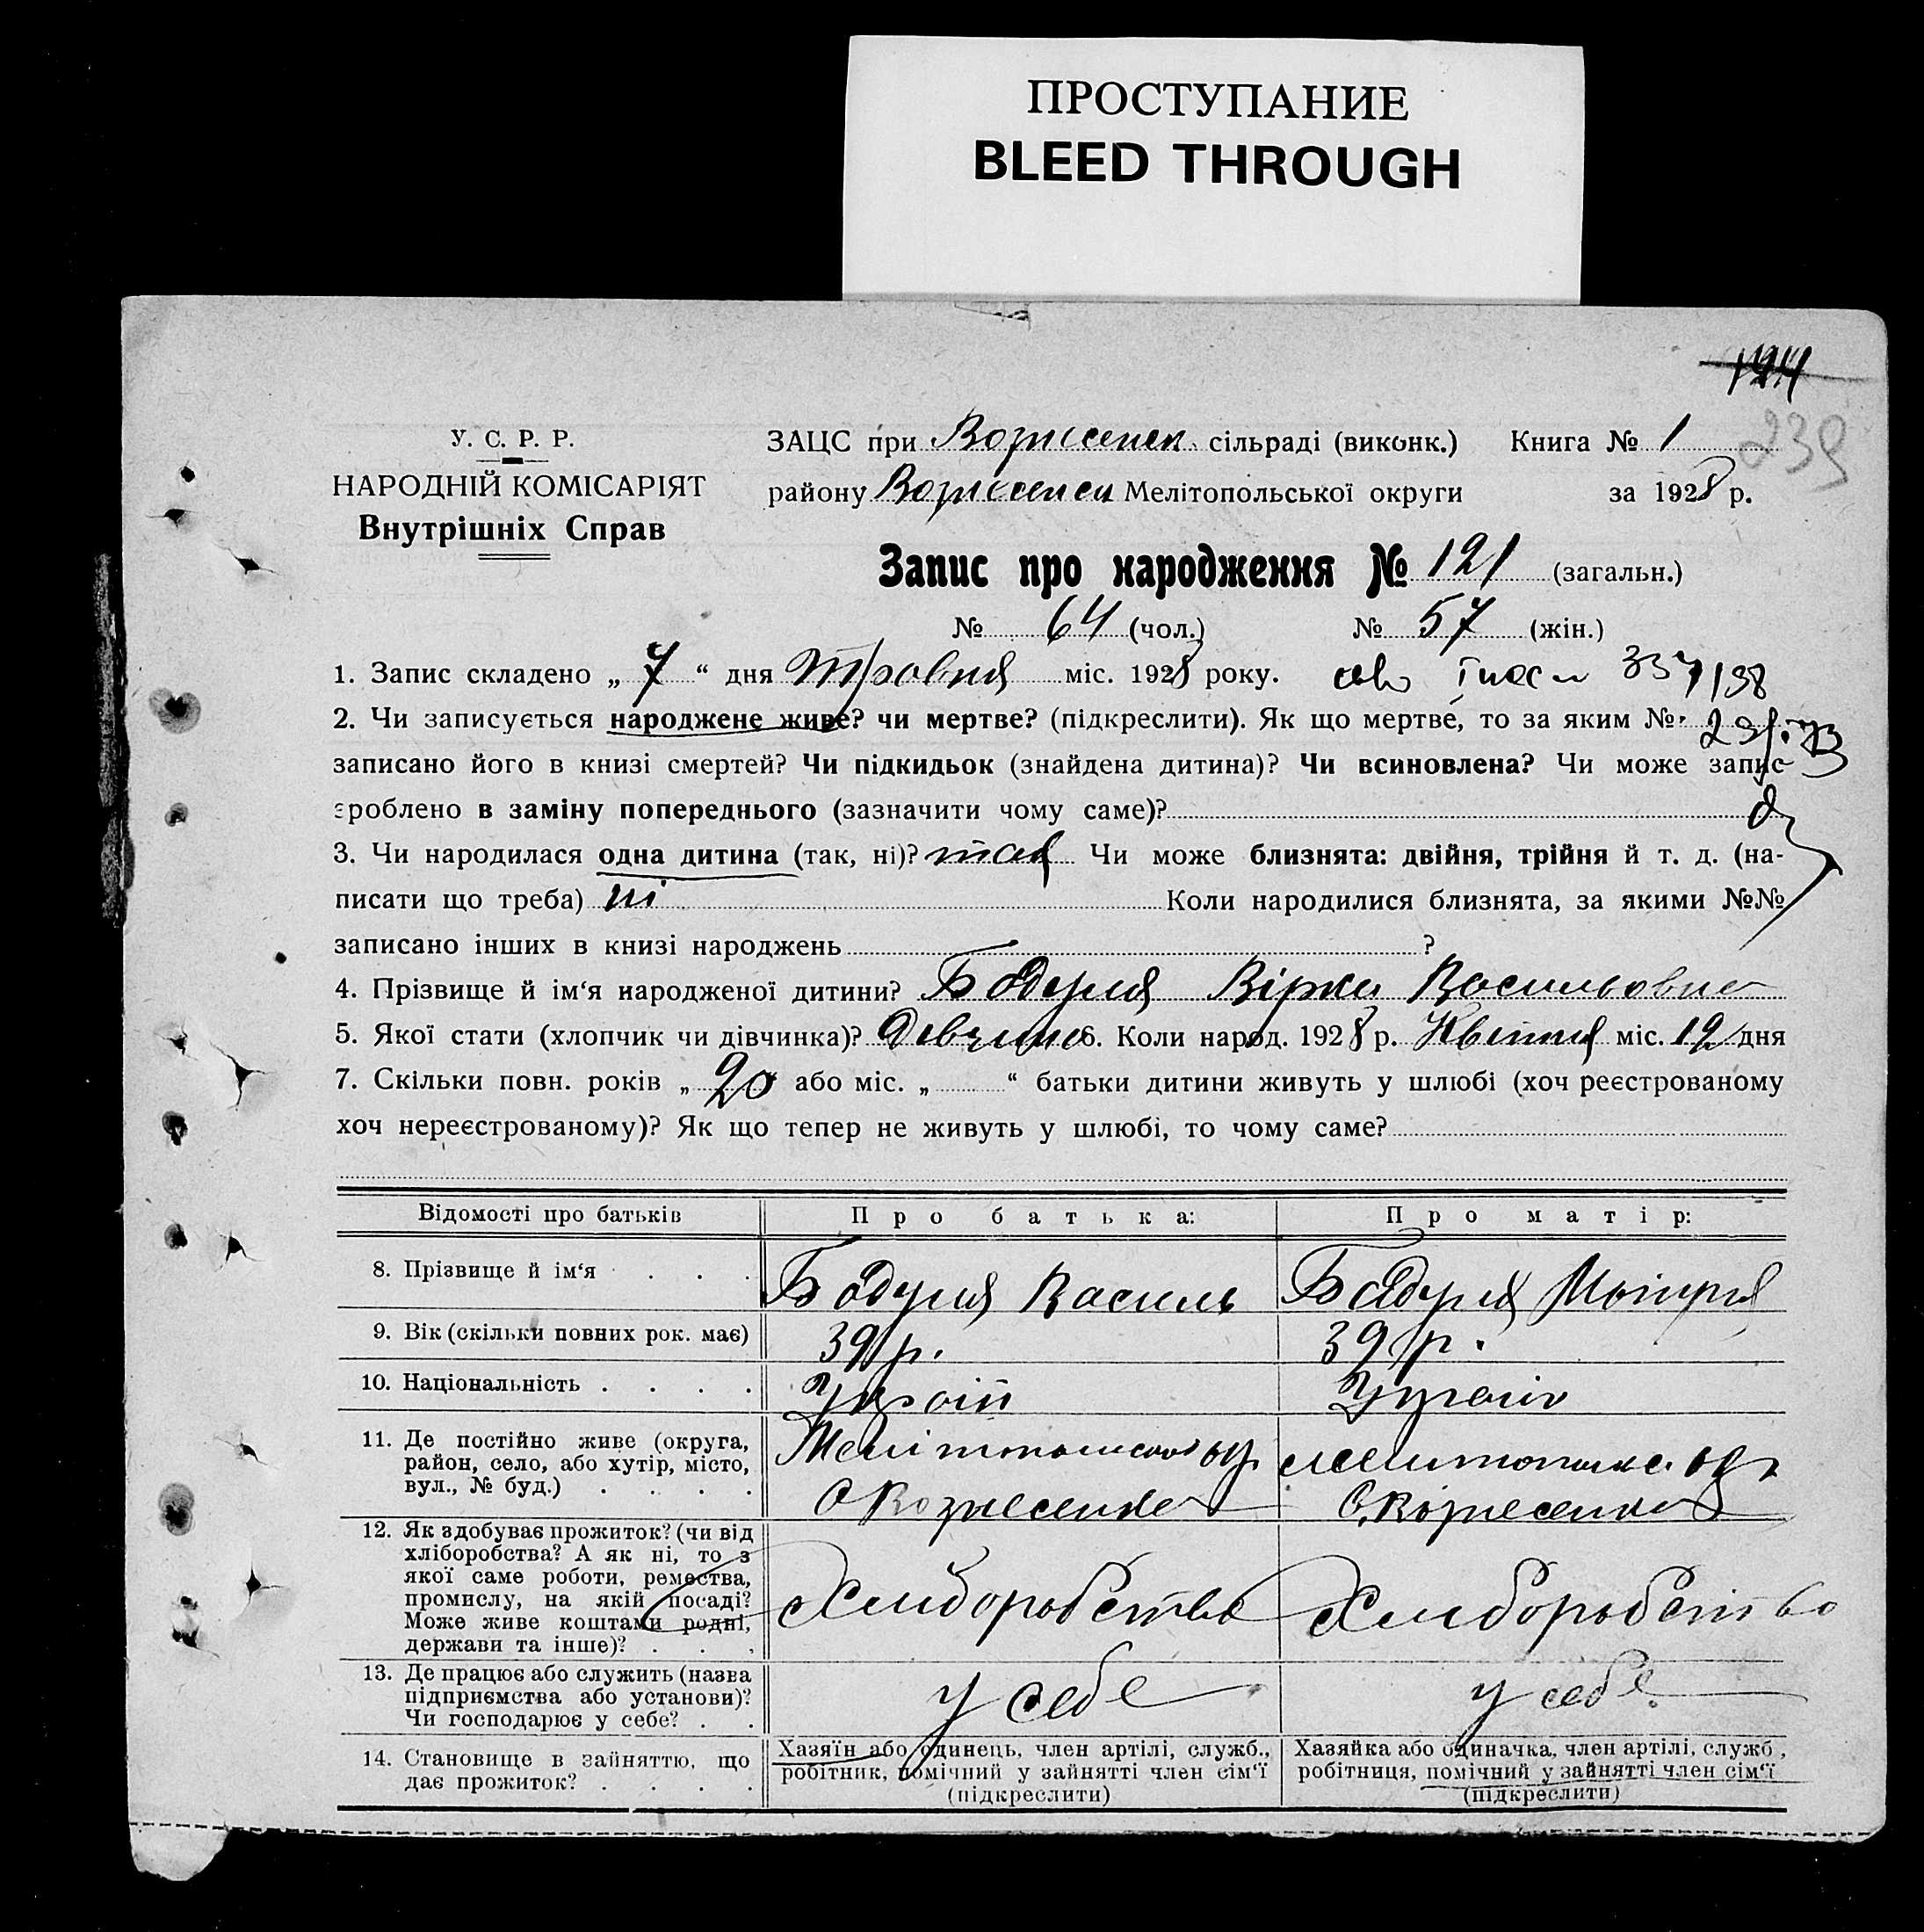 ПРОСТУПАНИЕ
BLEED THROUGH
194
239
У. С. Р. Р.
НАРОДНІЙ КОМІСАРІЯТ
Внутрішніх Справ
ЗАЦС при Вознесенск. сільраді (виконк.) Книга № 1
району Вознесенск Мелітопольської округи за 1928 р.
Запис про народження № 121 (загальн.)
№ 64 (чол.) № 57 (жін.)
1. Запис складено „ 7 “ дня Травня міс. 1928 року.
2. Чи записується народжене живе? чи мертве? (підкреслити). Як що мертве, то за яким №
записано його в книзі смертей? Чи підкидьок (знайдена дитина)? Чи всиновлена? Чи може запис
зроблено в заміну попереднього (зазначити чому саме)?
3. Чи народилася одна дитина (так, ні)? так Чи може близнята: двійня, трійня й т. д. (на-
писати що треба) ні Коли народилися близнята, за якими №№
записано інших в книзі народжень ?
4. Прізвище й ім‘я народженої дитини? Бодуля Вірка Васильовна
5. Якої стати (хлопчик чи дівчинка)? Девчина 6. Коли народ. 1928 р. Квітня міс. 19 дня
7. Скільки повн. років „ 20 “ або міс. „ “ батьки дитини живуть у шлюбі (хоч реєстрованому
хоч нереєстрованому)? Як що тепер не живуть у шлюбі, то чому саме?
Відомості про батьків Про батька: Про матір:
8. Прізвище й ім‘я . . . Бодуля Василь Бодуля
9. Вік (скільки повних рок. має) 39 р. 39 р.
10. Національність . . . . Україн Україн
11. Де постійно живе (округа,
район, село, або хутір, місто,
вул., № буд.) . . . .
Мелітопольської окр. Мелитопольс. окр
С Вознесенка С. Вознесенка
12. Як здобуває прожиток? (чи від
хліборобства? А як ні, то з
якої саме роботи, ремества,
промислу, на якій посаді?
Може живе коштами родні,
держави та інше)? . . .
Хлиборобство Хлиборобство
13. Де працює або служить (назва
підприємства або установи)?
Чи господарює у себе? . .
у себе у себе
14. Становище в зайняттю, що
дає прожиток? . . . .
Хазяїн або одинець, член артілі, служб.,
робітник, помічний у зайнятті член сім‘ї
(підкреслити)
Хазяйка або одиначка, член артілі, служб.,
робітниця, помічний у зайнятті член сім‘ї
(підкреслити)